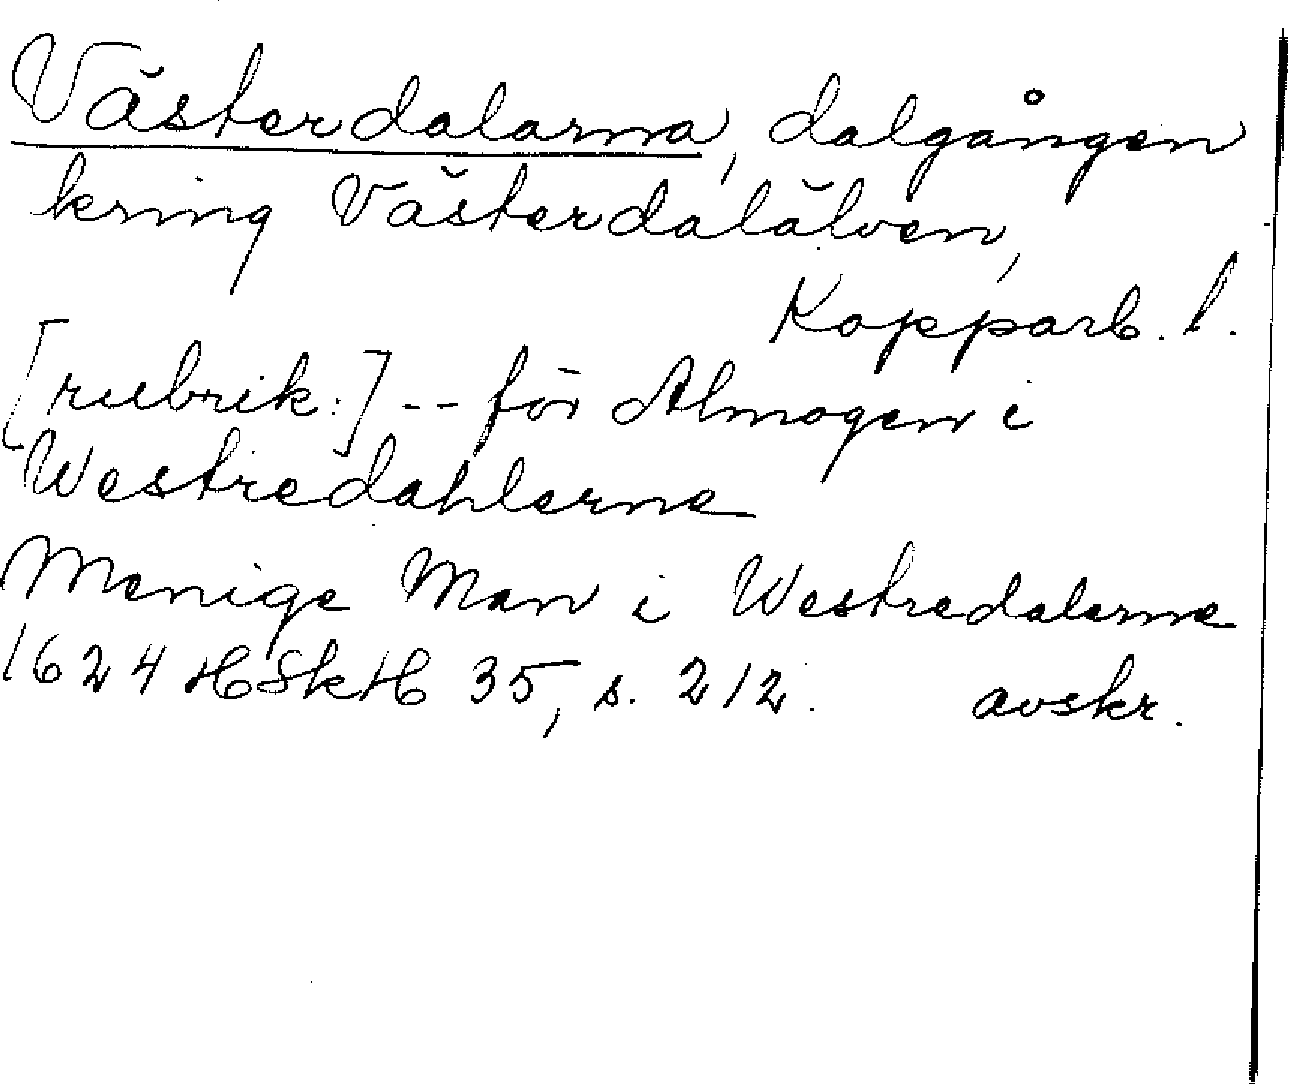 Västerdalarna, dalgången
kring Västerdalälven,
Kopparb. l.
[rubrik:] -- för Almogen i
Westredahlerne
Menige Man i Westredalerne
1624 HSkH 35, s. 212. avskr.